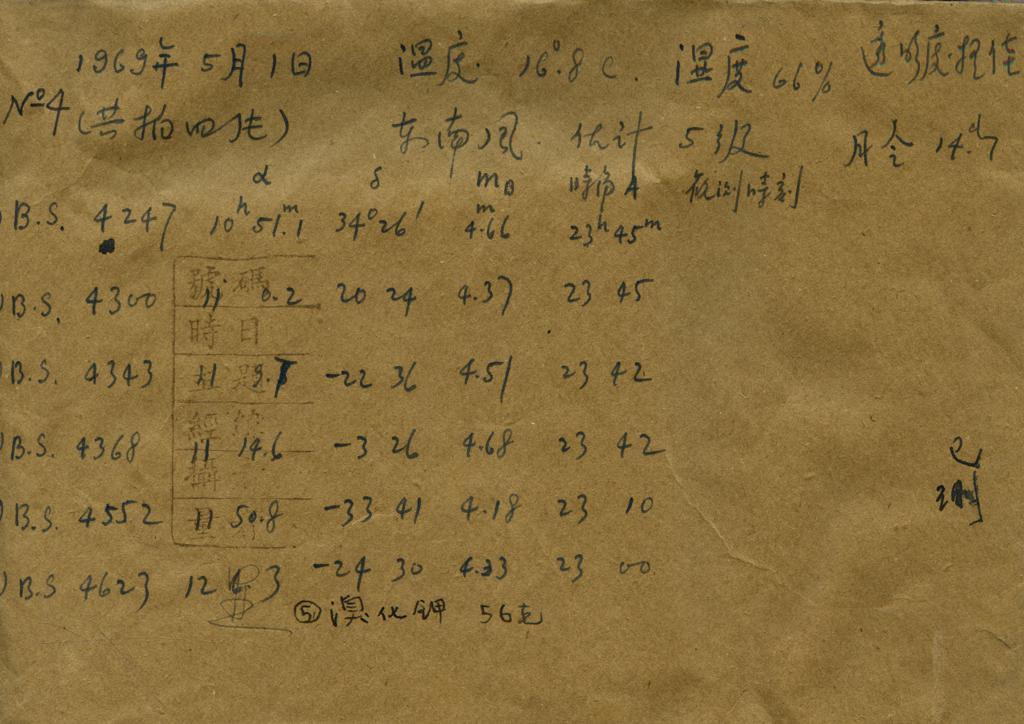 1969年 5月1日 温度 16°.8c. 湿度 66% 透明度.极佳
No4 (共拍四张) 东南风. 估计 5级 月令 14.d7
α δ mB 時角A 观测時刻
) B.S. 4247 10h 51.m1 34° 26′ 4.m66 23h 45m
) B.S. 4300 11 0.2 20 24 4.37 23 45
) B.S. 4343 11 9.7 -22 36 4.51 23 42
) B.S. 4368 11 14.6 -3 26 4.68 23 42
) B.S. 4552 11 50.8 -33 41 4.18 23 10
) B.S 4623 12 3 -24 30 4.23 23 00
⑤ 溴化钾 56克
號碼
時日
題
經緯
攝
已
测